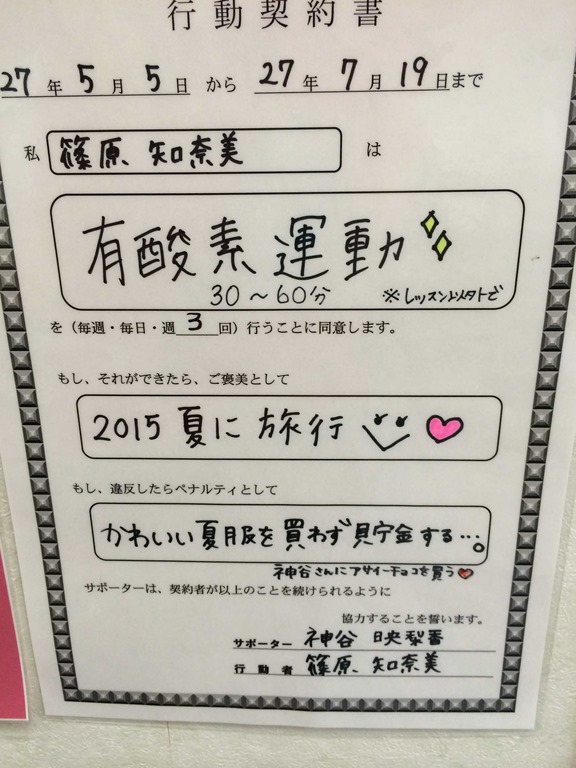 行動契約書
27年5月5日から27年7月19日まで
私 篠原 知奈美 は
有酸素運動
30～60分 ※レッスン以外で
を（毎週・毎日・週 3 回）行うことに同意します。
もし、それができたら、ご褒美として
2015 夏に旅行
もし、違反したらペナルティとして
かわいい夏服を買わず貯金する…。
神谷さんにアサイーチョコを買う
サポーターは、契約者が以上のことを続けられるように
協力することを誓います。
サポーター 神谷 映梨香
行動者 篠原 知奈美